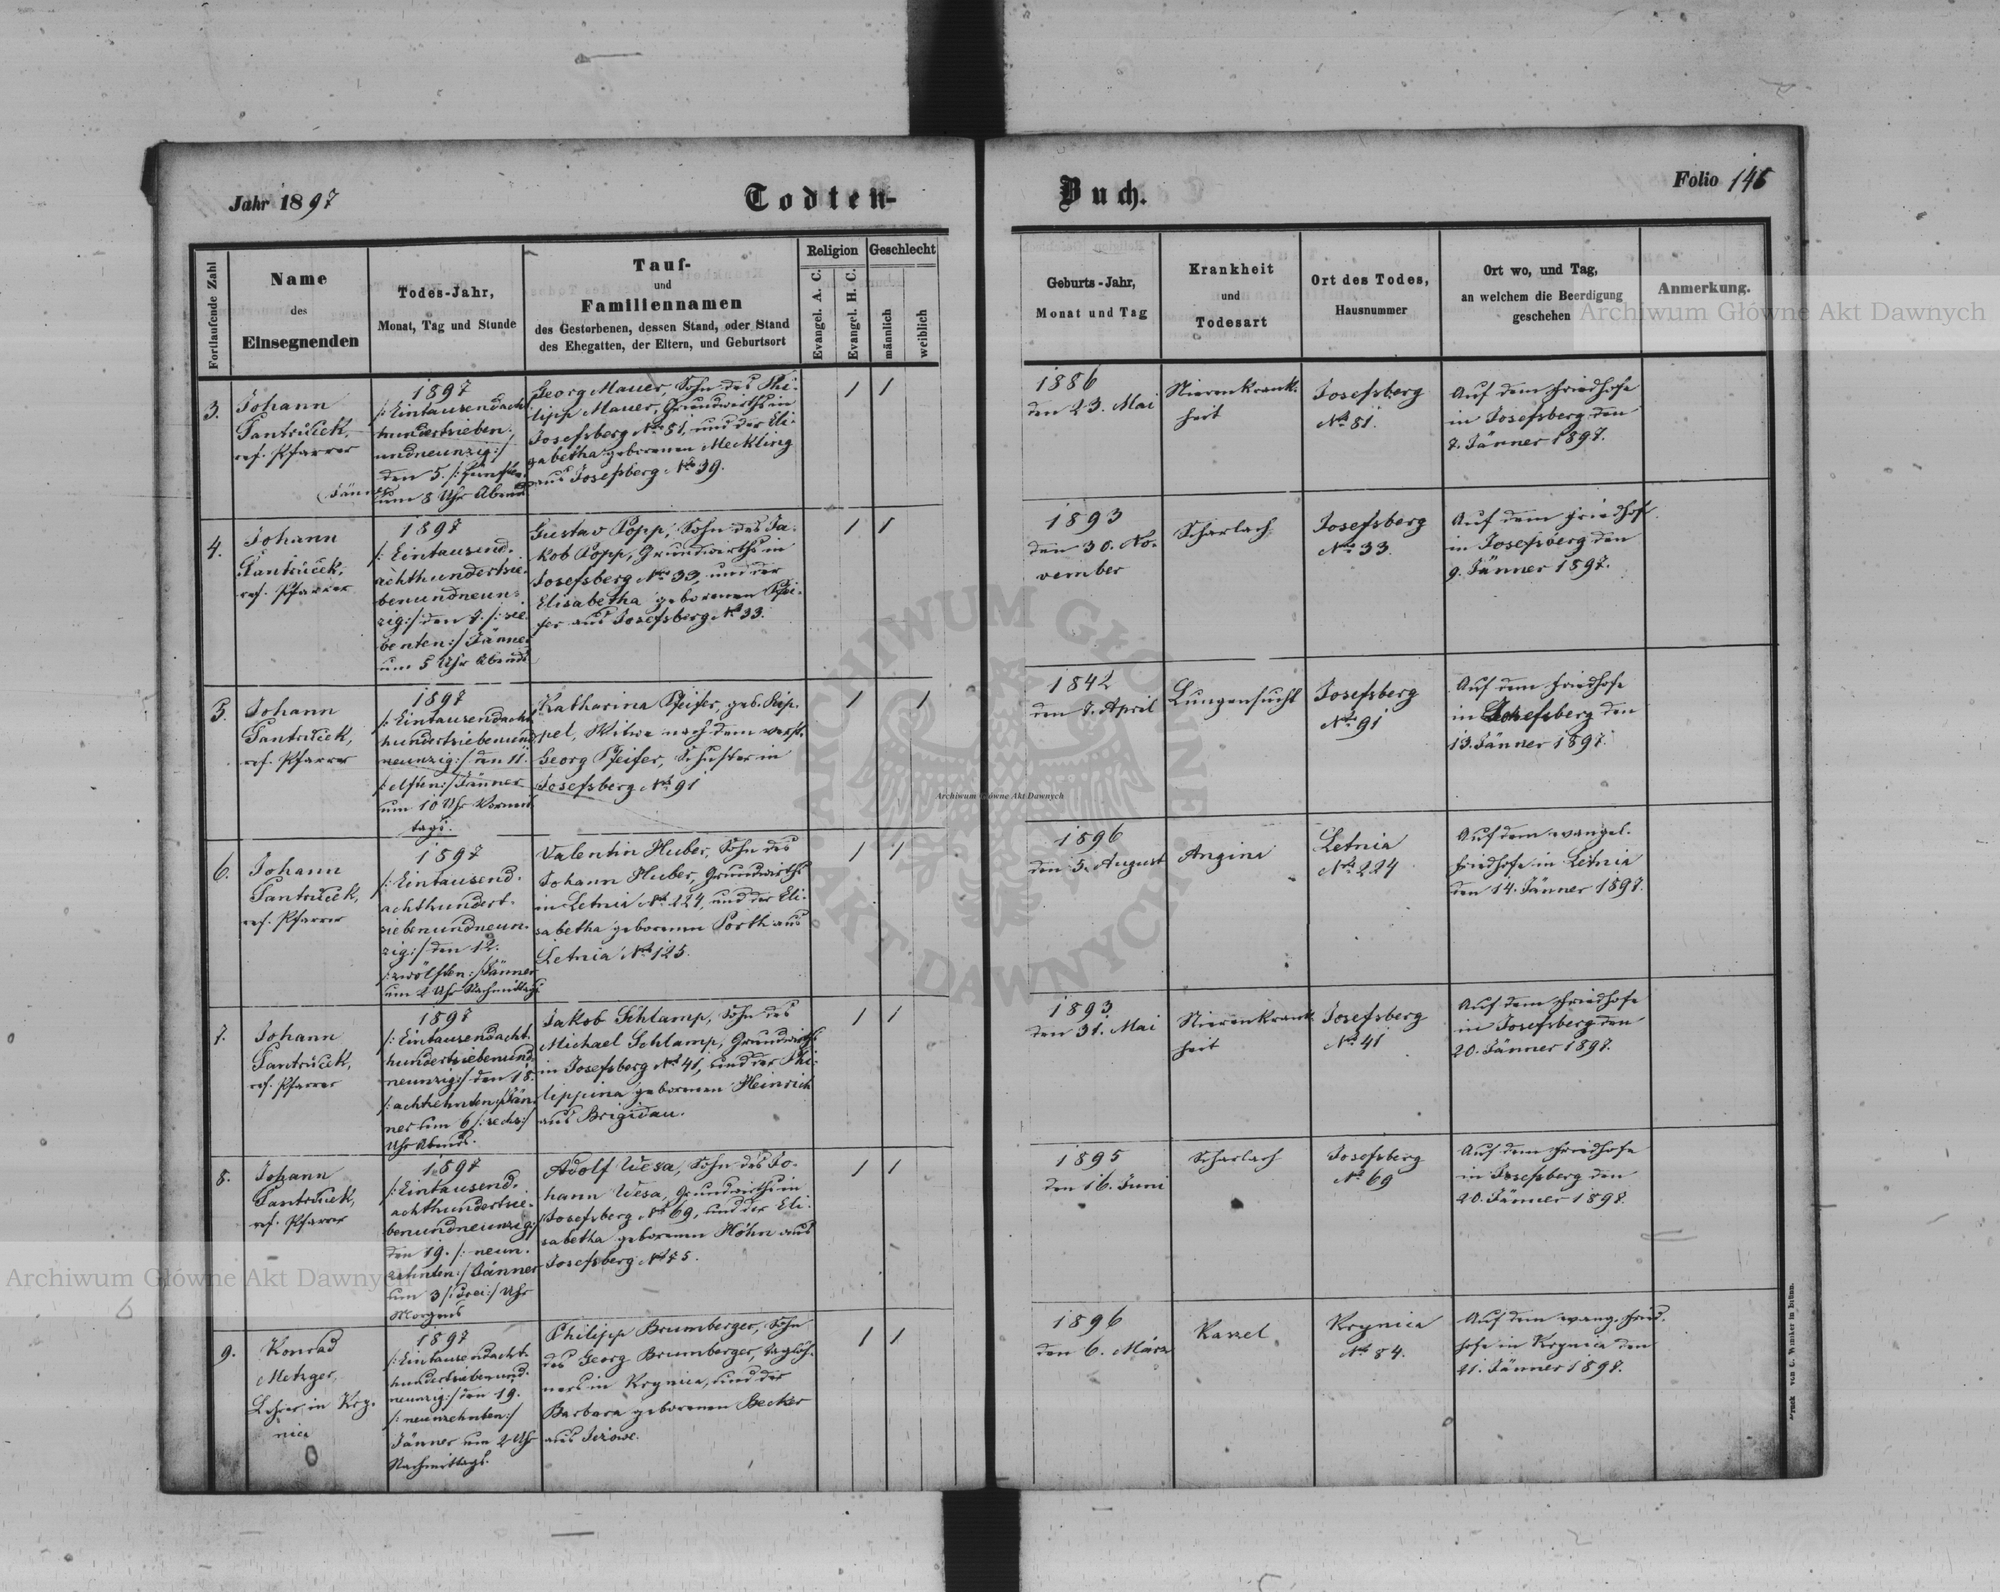 Jahr 1897
Todten-
Buch.
Folio 146
Fortlaufende Zahl
Name
des
Einsegnenden
Todes-Jahr,
Monat, Tag und Stunde
Tauf-
und
Familiennamen
des Gestorbenen, dessen Stand, oder Stand
des Ehegatten, der Eltern, und Geburtsort
Religion
Evangel. A. C.
Evangel. H. C.
Geschlecht
männlich
weiblich
Geburts-Jahr,
Monat und Tag
Krankheit
und
Todesart
Ort des Todes,
Hausnummer
Ort wo, und Tag,
an welchem die Beerdigung
geschehen
Anmerkung.
3.
Johann
ref. Pfarrer
1897
/:Eintausendacht
hundertsieben
undneunzig:/
den 5. /:fünften
Jänner
um 8 Uhr Abends
Georg Mauer, Sohn des Phi-
lipp Mauer, Grundwirths in
Josefsberg No 81, und der Eli-
sabetha geborenen Meckling
aus Josefsberg No 39.
/
/
1886
den 23. Mai
Nierenkrank-
heit
Josefsberg
No 81.
Auf dem Friedhofe
in Josefsberg den
7. Jänner 1897.
4.
Johann
ref. Pfarrer
1897
/:Eintausend-
achthundertsie-
benundneun-
zig:/ den 7. /:sie-
benten:/ Jänner
um 5 Uhr Abends
Gustav Popp, Sohn des Ja-
kob Popp, Grundwirths in
Josefsberg No 33, und der
Elisabetha geborenen Pfei-
fer aus Josefsberg No 33.
/
/
1893
den 30. No-
vember
Scharlach
Josefsberg
No 33.
Auf dem Friedhofe
in Josefsberg den
9. Jänner 1897.
5.
Johann
ref. Pfarrer
1897
/:Eintausendacht
hundertsiebenund
neunzig:/ den 11.
/:elften:/ Jänner
um 10 Uhr Vormit
tags.
Katharina Pfeifer, geb. Rip-
pel, Witwe nach dem verst.
Georg Pfeifer, Schuster in
Josefsberg No 91
/
/
1842
den 7. April
Lungensucht
Josefsberg
No 91
Auf dem Friedhofe
in Josefsberg den
13. Jänner 1897.
6.
Johann
ref. Pfarrer
1897
/:Eintausend-
achthundert-
siebenundneun-
zig:/ den 12.
/:zwölften:/ Jänner
um 2 Uhr Nachmittags
Valentin Huber, Sohn des
Johann Huber, Grundwirths
in Letnia No 224, und der Eli-
sabetha geborenen Porth aus
Letnia No 125.
/
/
1896
den 5. August
Angina
Letnia
No 224
Auf dem evangel.
Friedhofe in Letnia
den 14. Jänner 1897.
7.
Johann
ref. Pfarrer
1897
/:Eintausendacht-
hundertsiebenund
neunzig:/ den 18.
/:achtzehnten:/ Jän-
ner um 6 /:sechs:/
Uhr Abends.
Jakob Schlamp, Sohn des
Michael Schlamp, Grundwirths
in Josefsberg No 41, und der Phi-
lippina geborenen Heinrich
aus Brigidau.
/
/
1893
den 31. Mai
Nierenkrank
heit
Josefsberg
No 41
Auf dem Friedhofe
in Josefsberg den
20. Jänner 1897.
8.
Johann
ref. Pfarrer
1897
/:Eintausend-
achthundertsie-
benundneunzig:/
den 19. /:neun-
zehnten:/ Jänner
um 3 /:drei:/ Uhr
Morgens
Adolf Wesa, Sohn des Jo-
hann Wesa, Grundwirths in
Josefsberg No 69, und der Eli-
sabetha geborenen Höhn aus
Josefsberg No 75.
/
/
1895
den 16. Juni
Scharlach
Josefsberg
No 69
Auf dem Friedhofe
in Josefsberg den
20. Jänner 1897.
9.
Konrad
Metzger,
Lehrer in Kry-
nica
1897
/:Eintausendacht-
hundertsiebenund-
neunzig:/ den 19.
/:neunzehnten:/
Jänner um 2 Uhr
Nachmittags.
Philipp Brumberger, Sohn
des Georg Brumberger, Taglöh-
ners in Krynica, und der
Barbara geborenen Becker
aus Jeżowe.
/
/
1896
den 6. März
Krynica
No 84.
Auf dem evang. Fried-
hofe in Krynica den
21. Jänner 1897.
Archiwum Główne Akt Dawnych
Archiwum Główne Akt Dawnych
Archiwum Główne Akt Dawnych
ARCHIWUM GŁÓWNE AKT DAWNYCH